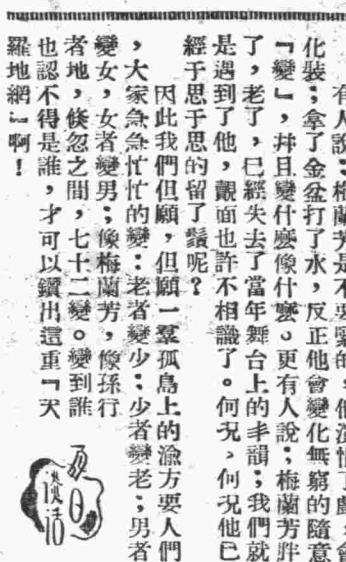 有人說：梅蘭芳是不要緊的，他演慣了戲，會
化裝；拿了金盆打了水，反正他會變化無窮的隨意
『變』，幷且變什麼像什麼。更有人說；梅蘭芳胖
了，老了，已經失去了當年舞台上的丰韻；我們就
是遇到了他，覿面也許不相識了。何况，何况他已
經于思于思的留了鬚呢？
因此我們但願，但願一羣孤島上的渝方要人們
，大家急急忙忙的變：老者變少；少者變老；男者
變女，女者變男；像梅蘭芳，像孫行
者地，倏忽之間，七十二變。變到誰
也認不得是誰，才可以鑽出這重『天
羅地網』啊！
日
談話